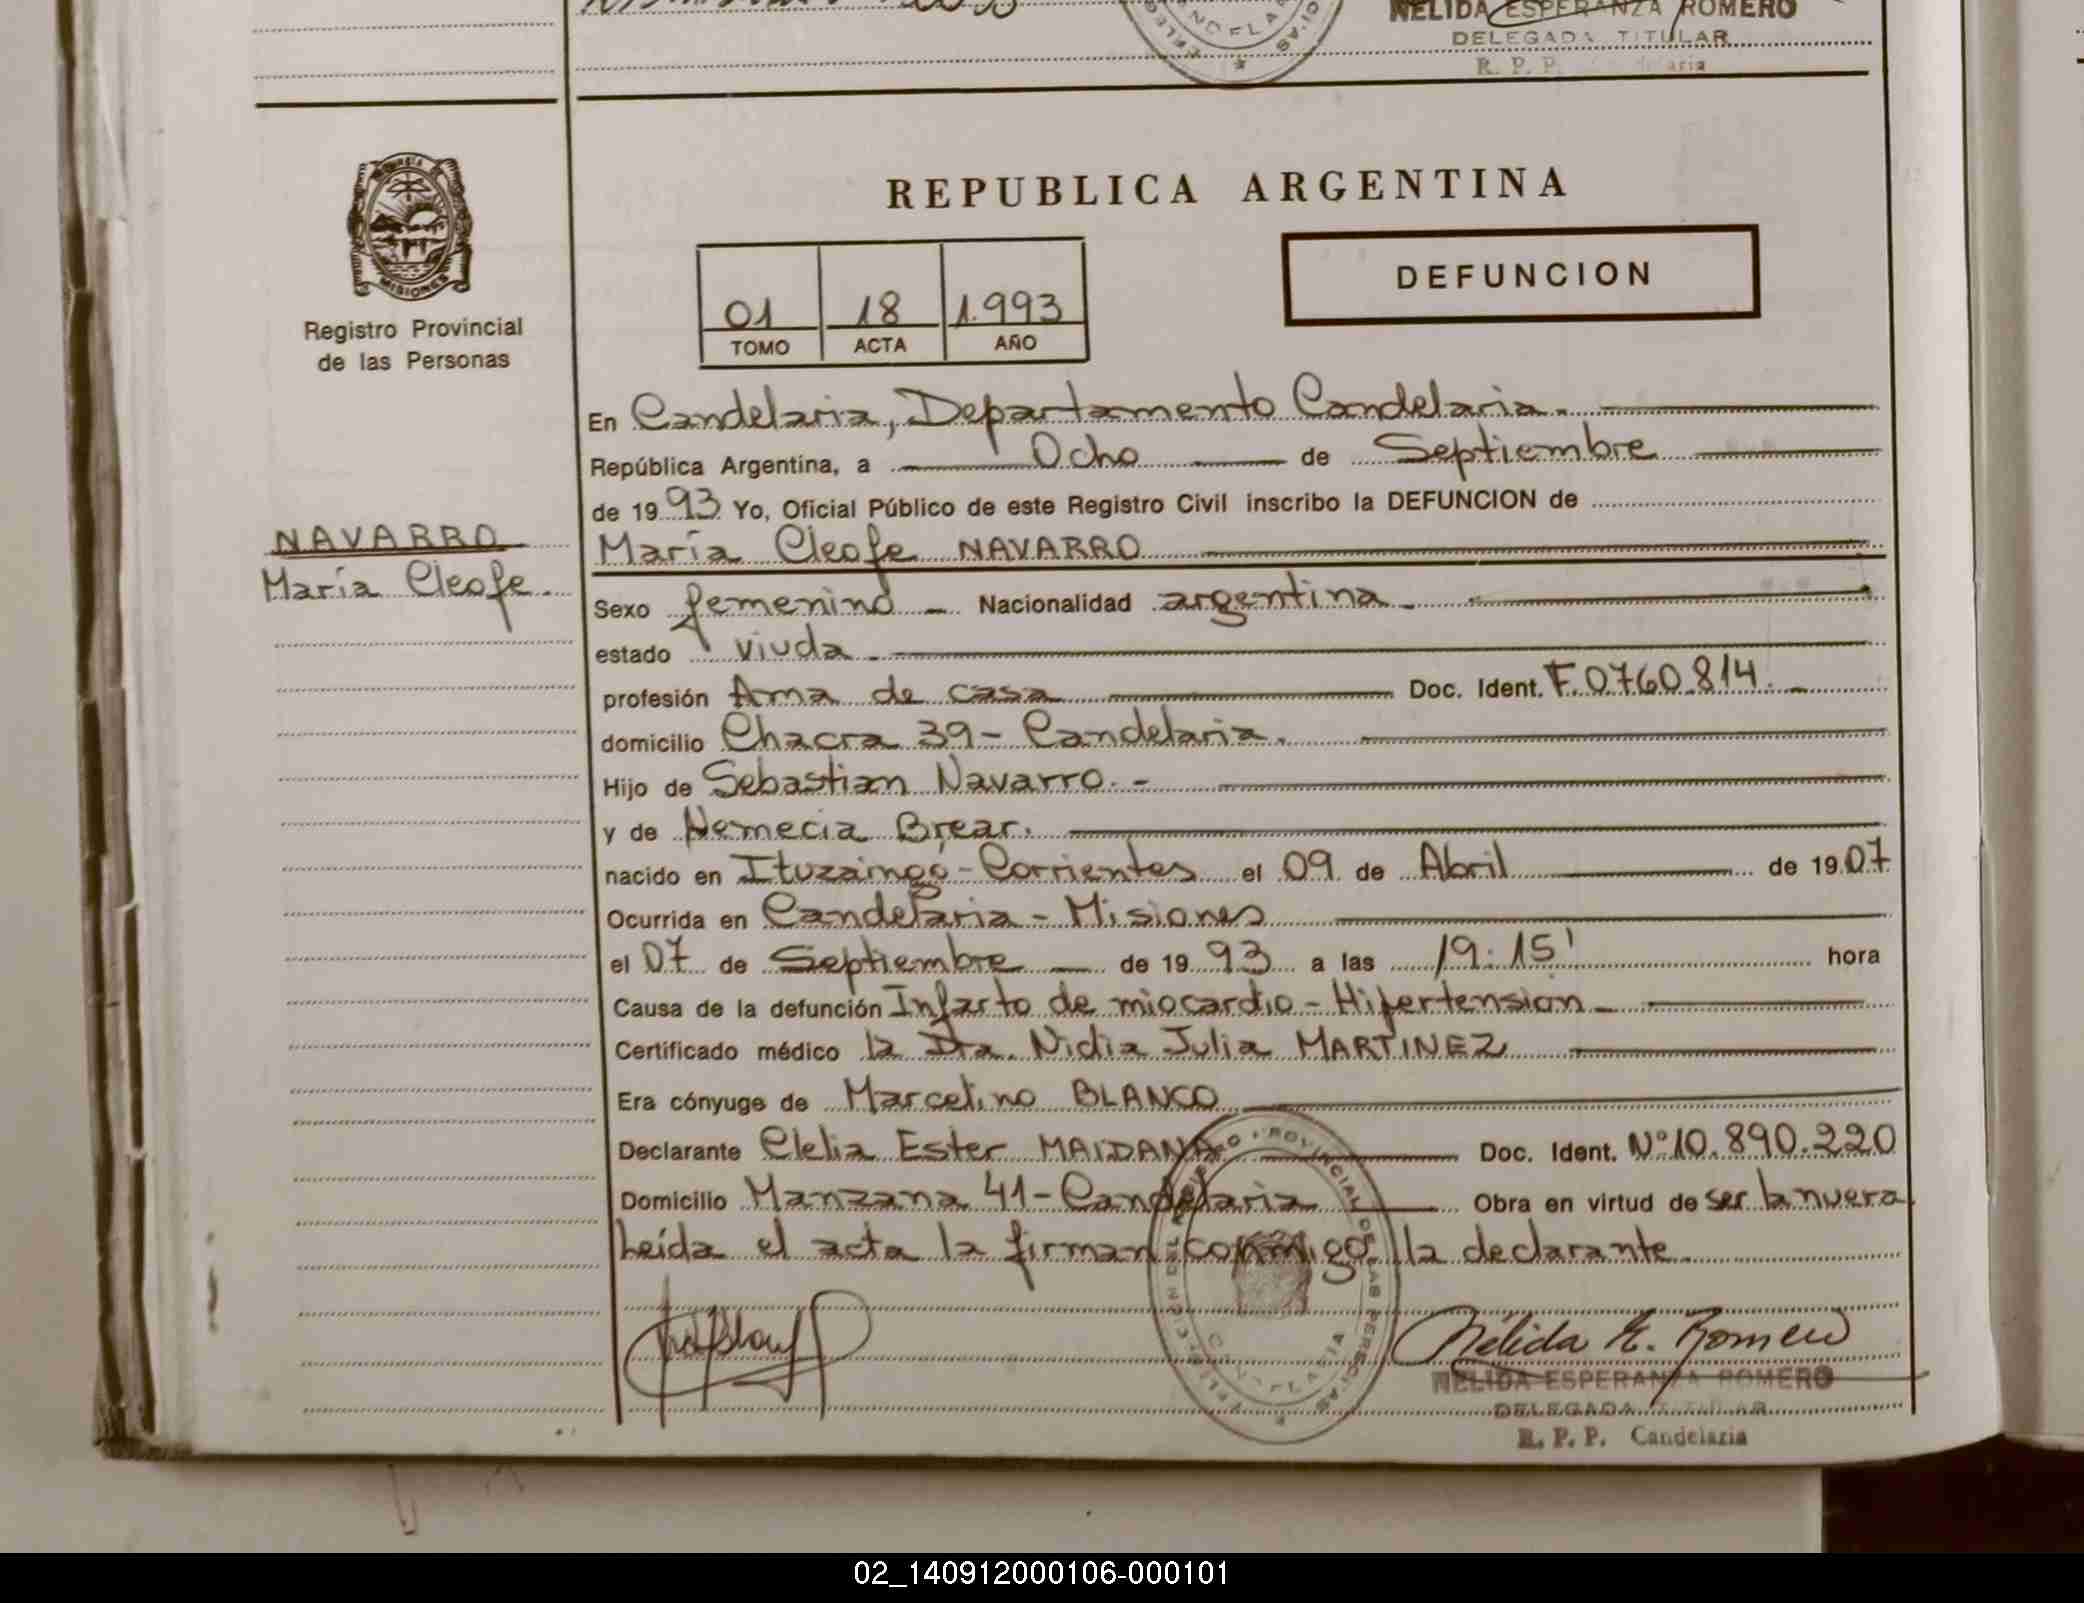 NELIDA ESPERANZA ROMERO
DELEGADA TITULAR
R. P. P. Candelaria
MISIONES
Registro Provincial
de las Personas
REPUBLICA ARGENTINA
01 18 1.993
TOMO ACTA AÑO
DEFUNCION
En Candelaria, Departamento Candelaria.
República Argentina, a Ocho de Septiembre
de 1993 Yo, Oficial Público de este Registro Civil inscribo la DEFUNCION de
NAVARRO
María Cleofe.
María Cleofe NAVARRO
Sexo femenino - Nacionalidad argentina -
estado viuda -
profesión Ama de casa Doc. Ident. F. 0760.814. -
domicilio Chacra 39 - Candelaria.
Hijo de Sebastian Navarro. -
y de Nemecia Brear.
nacido en Ituzaingó - Corrientes el 09 de Abril de 1907
Ocurrida en Candelaria - Misiones
el 07 de Septiembre de 1993 a las 19:15' hora
Causa de la defunción Infarto de miocardio - Hipertension -
Certificado médico la Dra. Nidia Julia MARTINEZ
Era cónyuge de Marcelino BLANCO
Declarante Clelia Ester MAIDANA Doc. Ident. Nº 10.890.220
Domicilio Manzana 41 - Candelaria Obra en virtud de ser la nuera
Leída el acta la firman conmigo la declarante.
Nélida E. Romero
NELIDA ESPERANZA ROMERO
DELEGADA TITULAR
R. P. P. Candelaria
02_140912000106-000101